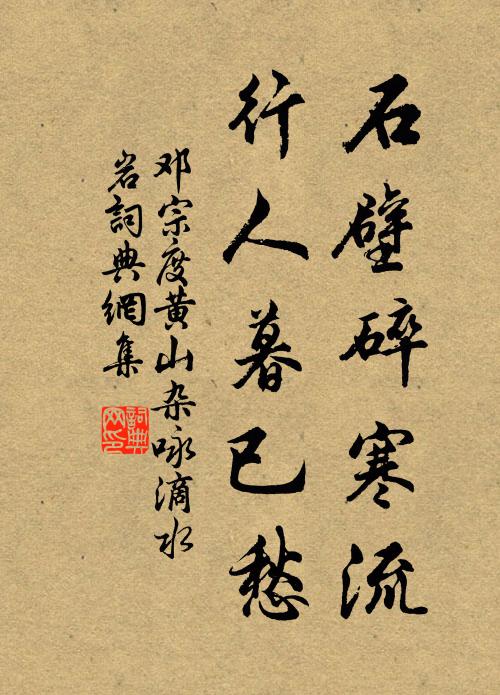 石壁碎寒流
行人暮已愁
邓宗度黄山杂咏滴水
岩詞典網集
詞典
网印